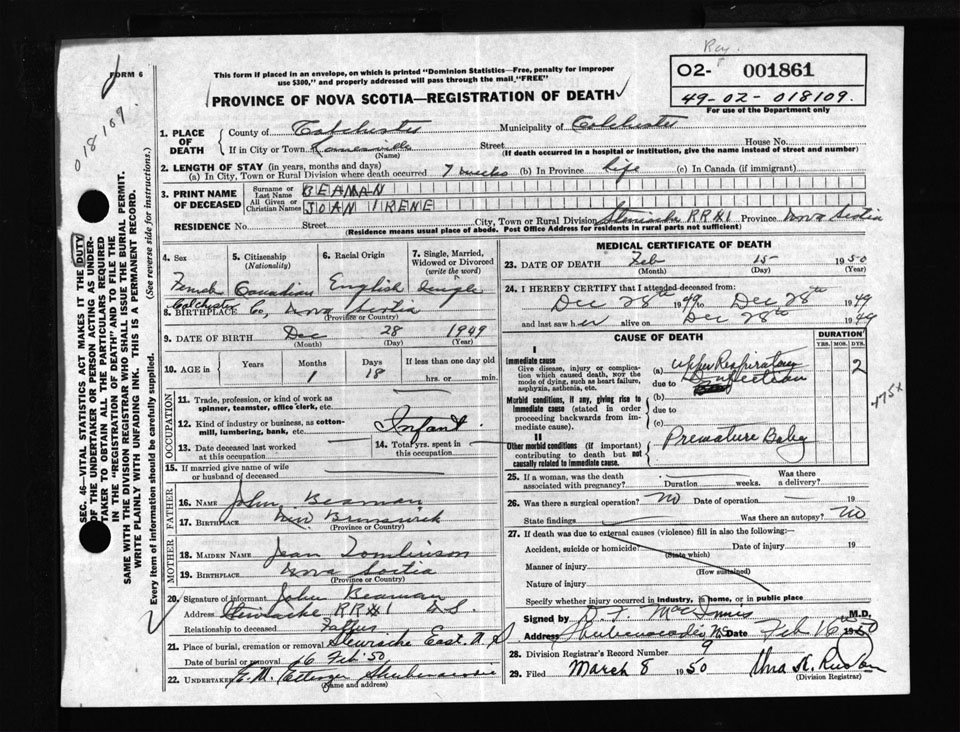 FORM 6
This form if placed in an envelope, on which is printed "Dominion Statistics—Free, penalty for improper
use $300," and properly addressed will pass through the mail "FREE"
PROVINCE OF NOVA SCOTIA—REGISTRATION OF DEATH
Reg.
O2- 001861
49-02-018109.
For use of the Department only
018109
1. PLACE OF DEATH { County of Colchester Municipality of Colchester
If in City or Town (Name) Street House No.
(If death occurred in a hospital or institution, give the name instead of street and number)
2. LENGTH OF STAY (in years, months and days)
(a) In City, Town or Rural Division where death occurred 7 weeks (b) In Province Life (c) In Canada (if immigrant)
3. PRINT NAME OF DECEASED { Surname or Last Name BEAMAN
All Given or Christian Names JOAN IRENE
RESIDENCE No. Street City, Town or Rural Division Stewiacke RR#1 Province Nova Scotia
(Residence means usual place of abode. Post Office Address for residents in rural parts not sufficient)
4. Sex Female
5. Citizenship (Nationality) Canadian
6. Racial Origin English
7. Single, Married, Widowed or Divorced (write the word) Single
8. BIRTHPLACE Colchester Co, Nova Scotia
(Province or Country)
9. DATE OF BIRTH Dec 28 1949
(Month) (Day) (Year)
10. AGE in { Years Months 1 Days 18 If less than one day old hrs. or min.
OCCUPATION
11. Trade, profession, or kind of work as spinner, teamster, office clerk, etc.
12. Kind of industry or business, as cotton-mill, lumbering, bank, etc. Infant
13. Date deceased last worked at this occupation
14. Total yrs. spent in this occupation
15. If married give name of wife or husband of deceased
FATHER
16. NAME John Beaman
17. BIRTHPLACE New Brunswick
(Province or Country)
MOTHER
18. MAIDEN NAME Jean Tomlinson
19. BIRTHPLACE Nova Scotia
(Province or Country)
20. Signature of informant John Beaman
Address Stewiacke RR#1 N.S.
Relationship to deceased Father
21. Place of burial, cremation or removal Stewiacke East N.S.
Date of burial or removal 16 Feb '50
22. UNDERTAKER E.M. Ettinger Shubenacadie
(Name and address)
MEDICAL CERTIFICATE OF DEATH
23. DATE OF DEATH Feb 15 1950
(Month) (Day) (Year)
24. I HEREBY CERTIFY that I attended deceased from:
Dec 28th 1949 to Dec 28th 1949
and last saw her alive on Dec 28th 1949
CAUSE OF DEATH
DURATION
YRS. MOS. DYS.
I
Immediate cause
Give disease, injury or complication which caused death, not the mode of dying, such as heart failure, asphyxia, asthenia, etc.
(a) Upper Respiratory
due to Infection 2
Morbid conditions, if any, giving rise to immediate cause (stated in order proceeding backwards from immediate cause).
(b)
due to
(c)
II
Other morbid conditions (if important) contributing to death but not causally related to immediate cause.
Premature Baby
475x
25. If a woman, was the death associated with pregnancy? Duration weeks. Was there a delivery?
26. Was there a surgical operation? No Date of operation 19
State findings Was there an autopsy? No
27. If death was due to external causes (violence) fill in also the following:
Accident, suicide or homicide? (State which) Date of injury 19
Manner of injury
(How sustained)
Nature of injury
Specify whether injury occurred in industry, in home, or in public place
Signed by D F McInnis M.D.
Address Shubenacadie NS Date Feb 16 1950
28. Division Registrar's Record Number 9
29. Filed March 8 1950
(Division Registrar)
SEC. 46—VITAL STATISTICS ACT MAKES IT THE DUTY
OF THE UNDERTAKER OR PERSON ACTING AS UNDER-
TAKER TO OBTAIN ALL THE PARTICULARS REQUIRED
IN THE "REGISTRATION OF DEATH" AND TO FILE THE
SAME WITH THE DIVISION REGISTRAR WHO SHALL ISSUE THE BURIAL PERMIT.
WRITE PLAINLY WITH UNFADING INK. THIS IS A PERMANENT RECORD.
Every item of information should be carefully supplied. (See reverse side for instructions.)